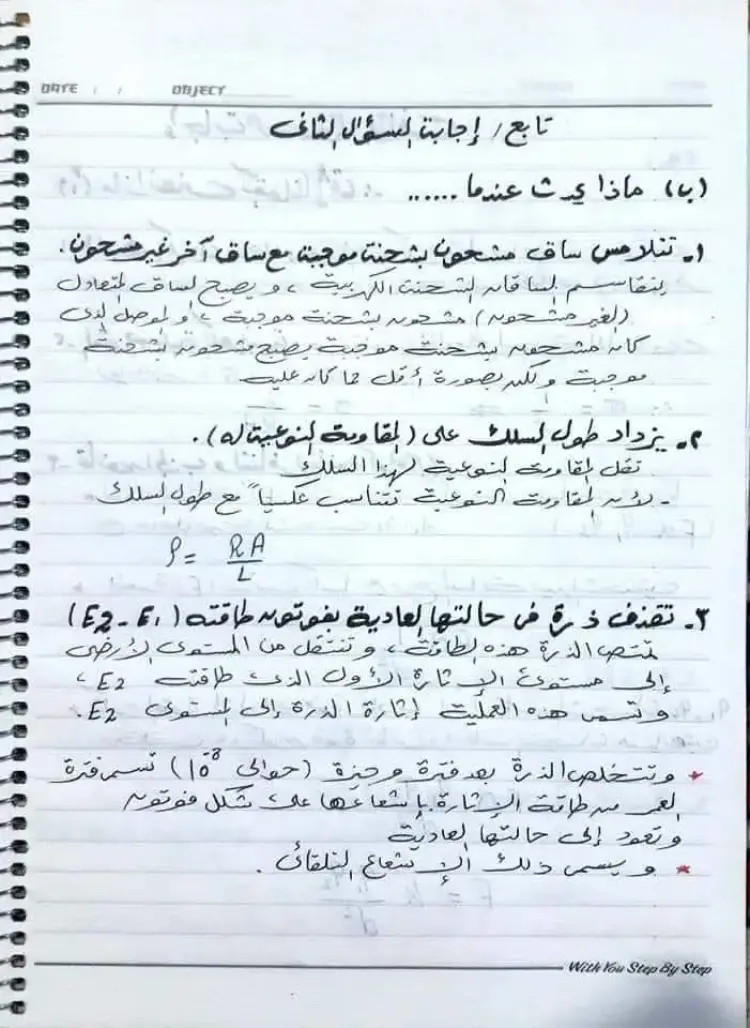 DATE / / OBJECT
تابع / إجابة السؤال الثانى
(ب) ماذا يحدث عندما ......
١- تتلامس ساق مشحون بشحنة موجبة مع ساق آخر غير مشحون.
يتقاسم الساقان الشحنة الكهربية ، ويصبح الساق المتعادل
(الغير مشحون) مشحون بشحنة موجبة ، والموصل الذى
كان مشحون بشحنة موجبة يصبح مشحون بشحنة
موجبة ولكن بصورة أقل مما كان عليه.
٢- يزداد طول السلك على (المقاومة النوعية له).
تقل المقاومة النوعية لهذا السلك
- لأن المقاومة النوعية تتناسب عكسياً مع طول السلك
ρ = RA / L
٣- تقذف ذرة فى حالتها العادية بفوتون طاقته (E2 - E1)
تمتص الذرة هذه الطاقة ، وتنتقل من المستوى الأرضى
إلى مستوى الإثارة الأول الذى طاقته E2 ،
وتسمى هذه العملية إثارة الذرة إلى المستوى E2.
* وتتخلص الذرة بعد فترة وجيزة (حوالى 10⁻⁸) تسمى فترة
العمر من طاقة الإثارة بإشعاعها على شكل فوتون
وتعود إلى حالتها العادية
* ويسمى ذلك الإشعاع التلقائى .
With You Step By Step